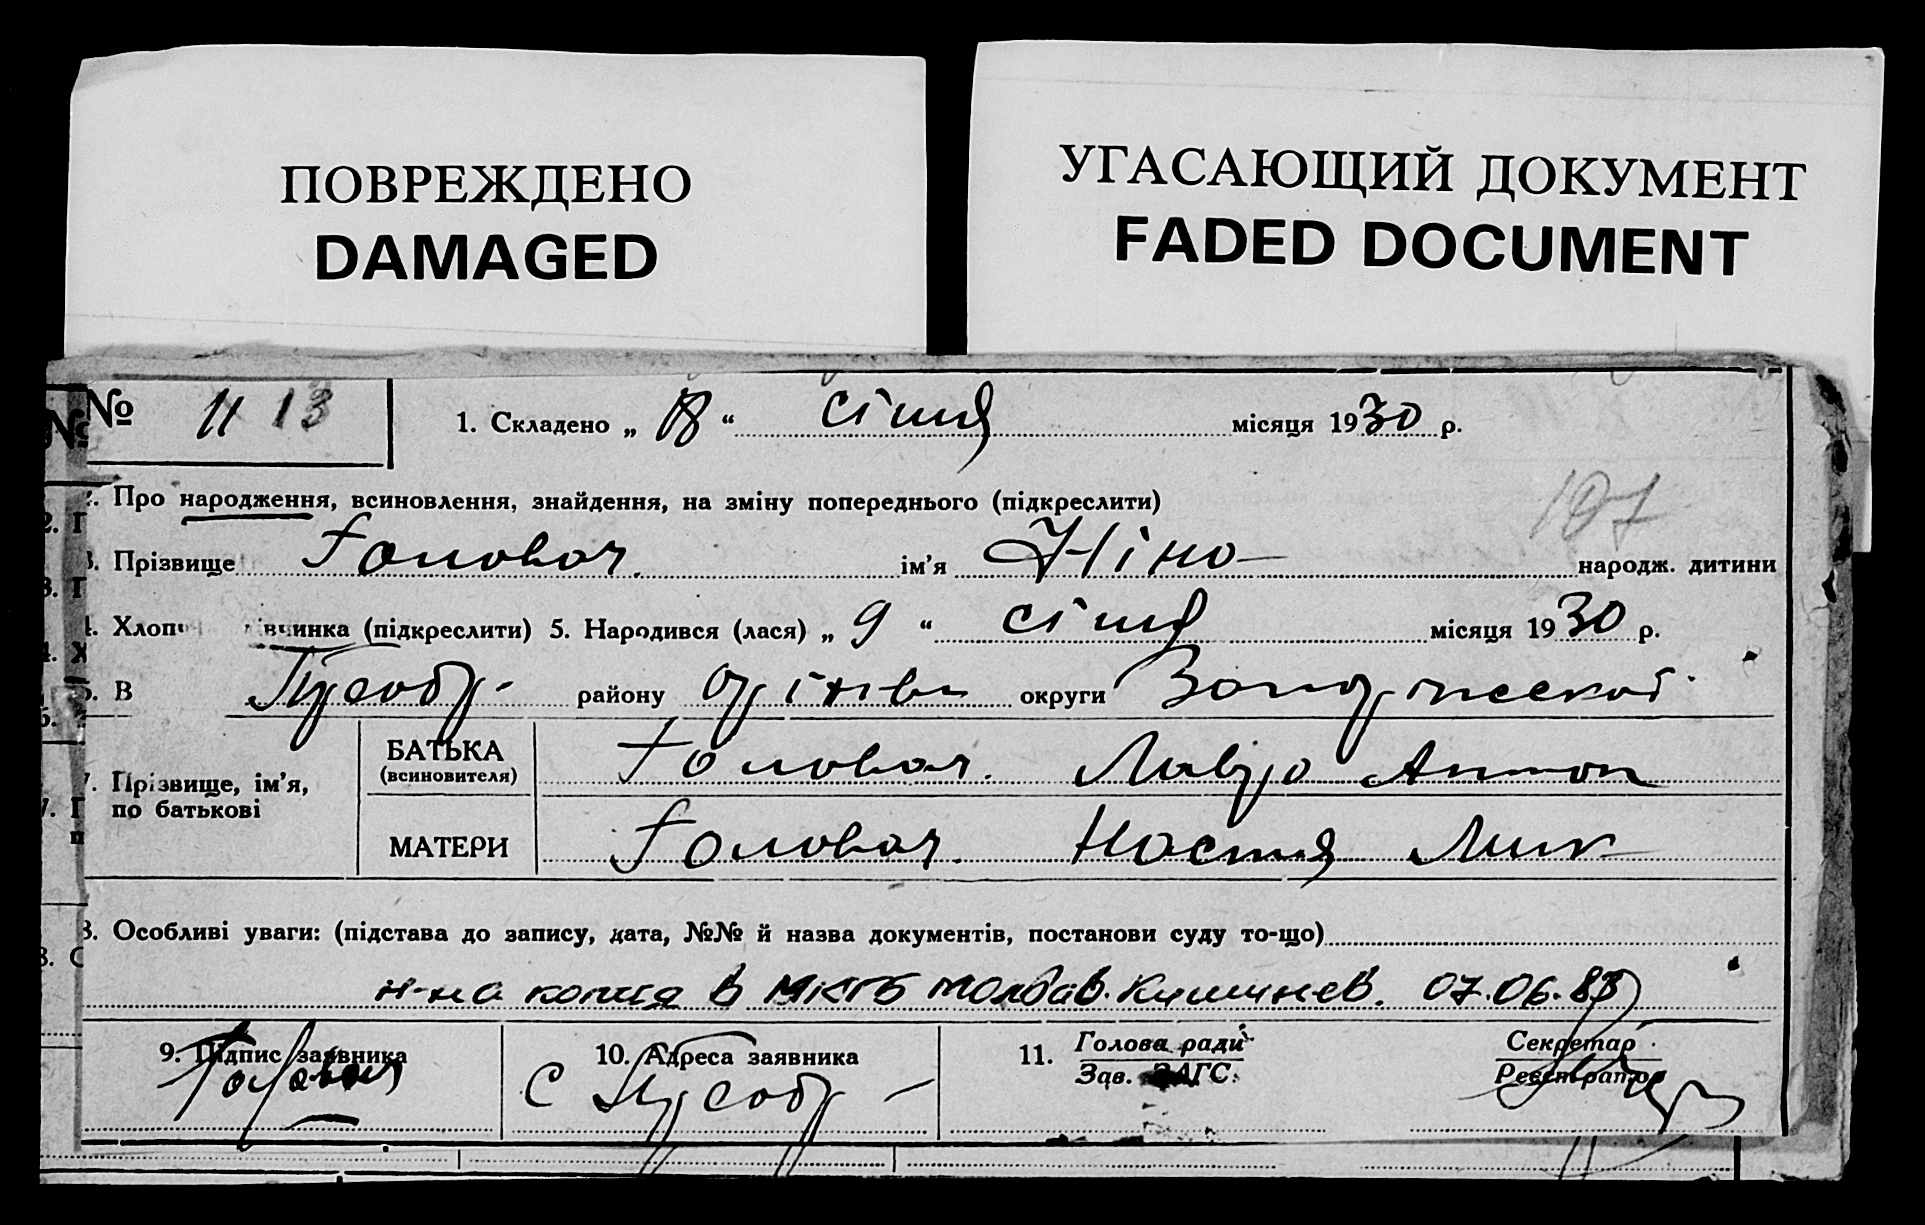 ПОВРЕЖДЕНО
DAMAGED
УГАСАЮЩИЙ ДОКУМЕНТ
FADED DOCUMENT
№ 11 13
1. Складено „ 18 “ січня місяця 1930 р.
Про народження, всиновлення, знайдення, на зміну попереднього (підкреслити)
107
3. Прізвище Головач. ім'я Ніна народж. дитини
4. Хлопч івчинка (підкреслити) 5. Народився (лася) „ 9 “ січня місяця 1930 р.
В району округи
7. Прізвище, ім'я, по батькові
БАТЬКА (всиновителя) Головач. Лавро Антон
МАТЕРИ Головач. Настя Мик
8. Особливі уваги: (підстава до запису, дата, №№ й назва документів, постанови суду то-що)
н-на копия в Молдав. Кишинев. 07.06.83
9. Підпис заявника
10. Адреса заявника
С
11. Голова ради
Зав. ЗАГС.
Секретар
Реєстратор